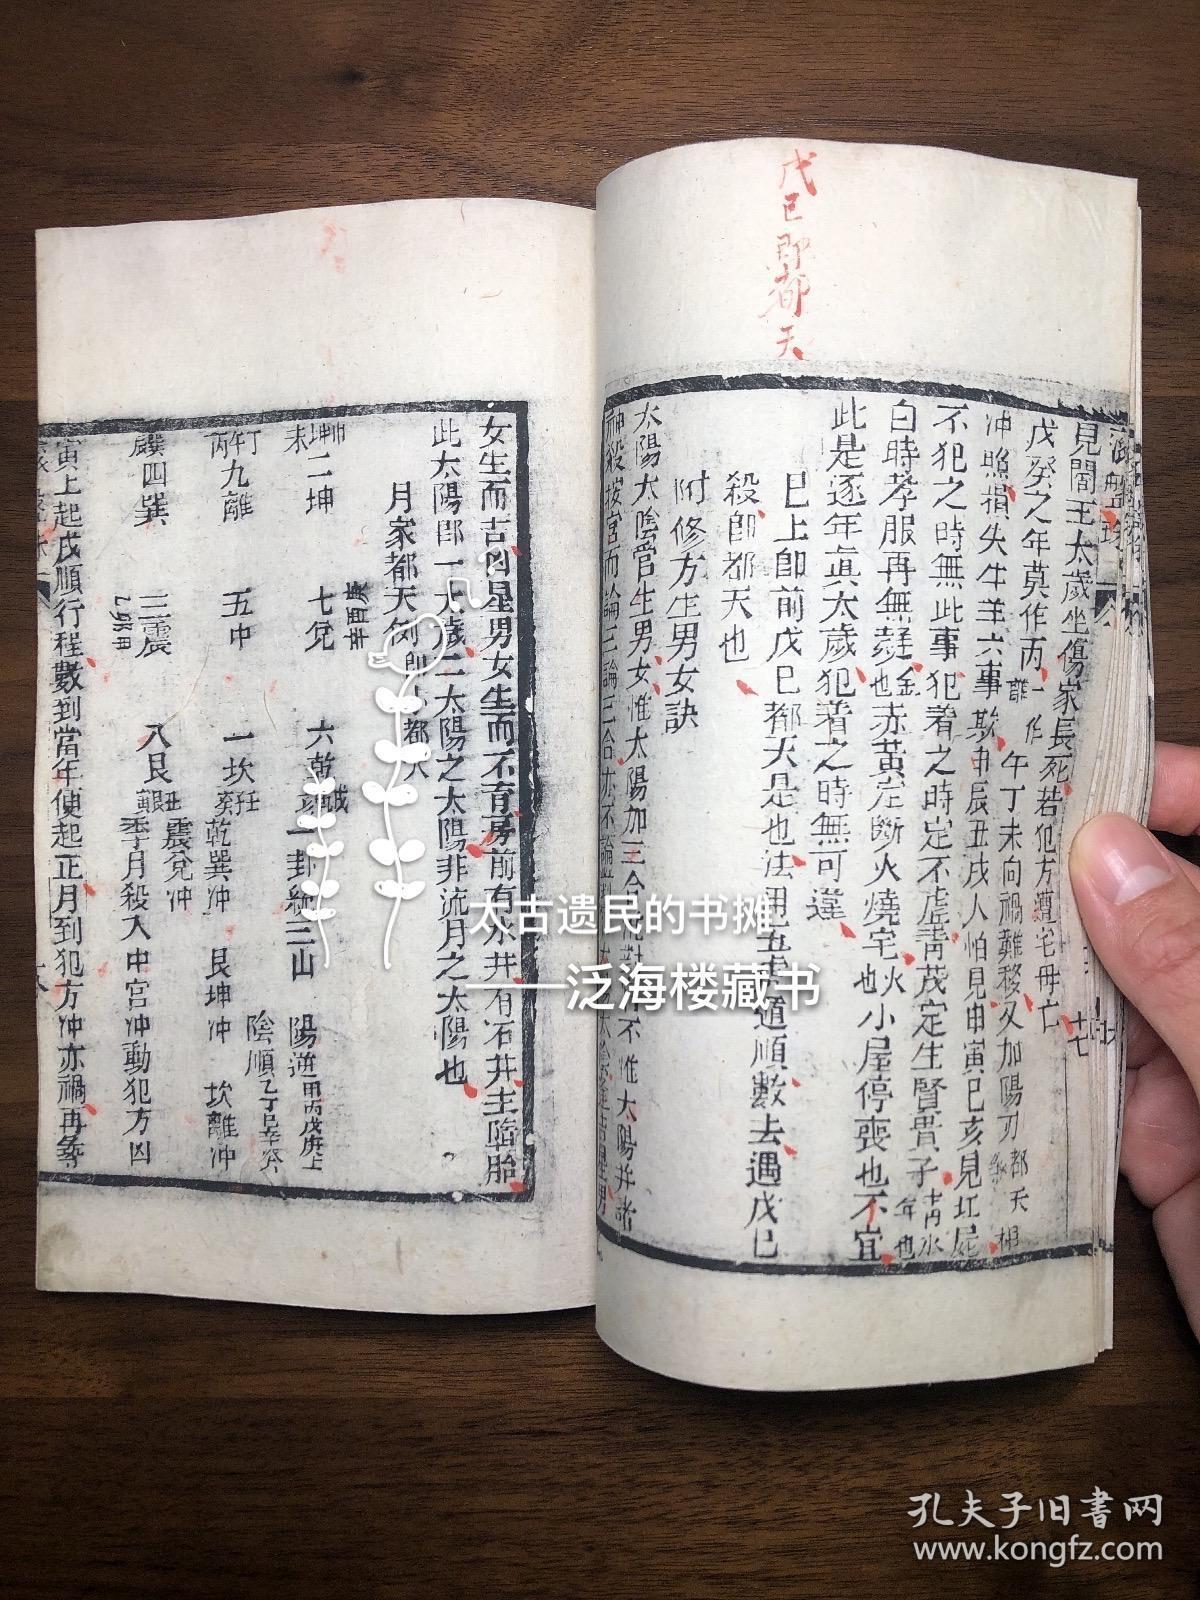 戊己即都天
見閻王太歲坐傷家長死若犯方遭宅母亡
戊癸之年莫作丙 一作離 午丁未向禍難移又加陽刃
冲照損失牛羊六事欺申辰丑戌人怕見申寅巳亥見
不犯之時無此事犯着之時定不虛靑茂定生賢貴子
白時孝服再無疑 也 赤黃定斷火燒宅 也 小屋停喪也不宜
此是逐年眞太歲犯着之時無可違
已上即前戊己都天是也法用五虎遁順數去遇戊己
殺即都天也
附修方生男女訣
太陽太陰管生男女惟太陽加三合
神殺按宮而論
女生而吉凶星男女生而不育房前有水井有石井主陷胎
此太陽即一太歲二太陽之太陽非流月之太陽也
月家都天例即小都天
未坤申 二坤 庚酉辛 七兌 六乾 戌亥 一卦統三山 陽逆 甲丙戊庚上
丙午丁 九離 五中 一坎 壬癸 乾巽冲 艮坤冲 坎離冲 陰順 乙丁己辛癸
四巽 三震 八艮 震兌冲 季月殺入中宮冲動犯方凶
寅上起戊順行程數到當年值起正月到犯方冲亦禍再
太古遗民的书摊
——泛海楼藏书
孔夫子旧书网
www.kongfz.com